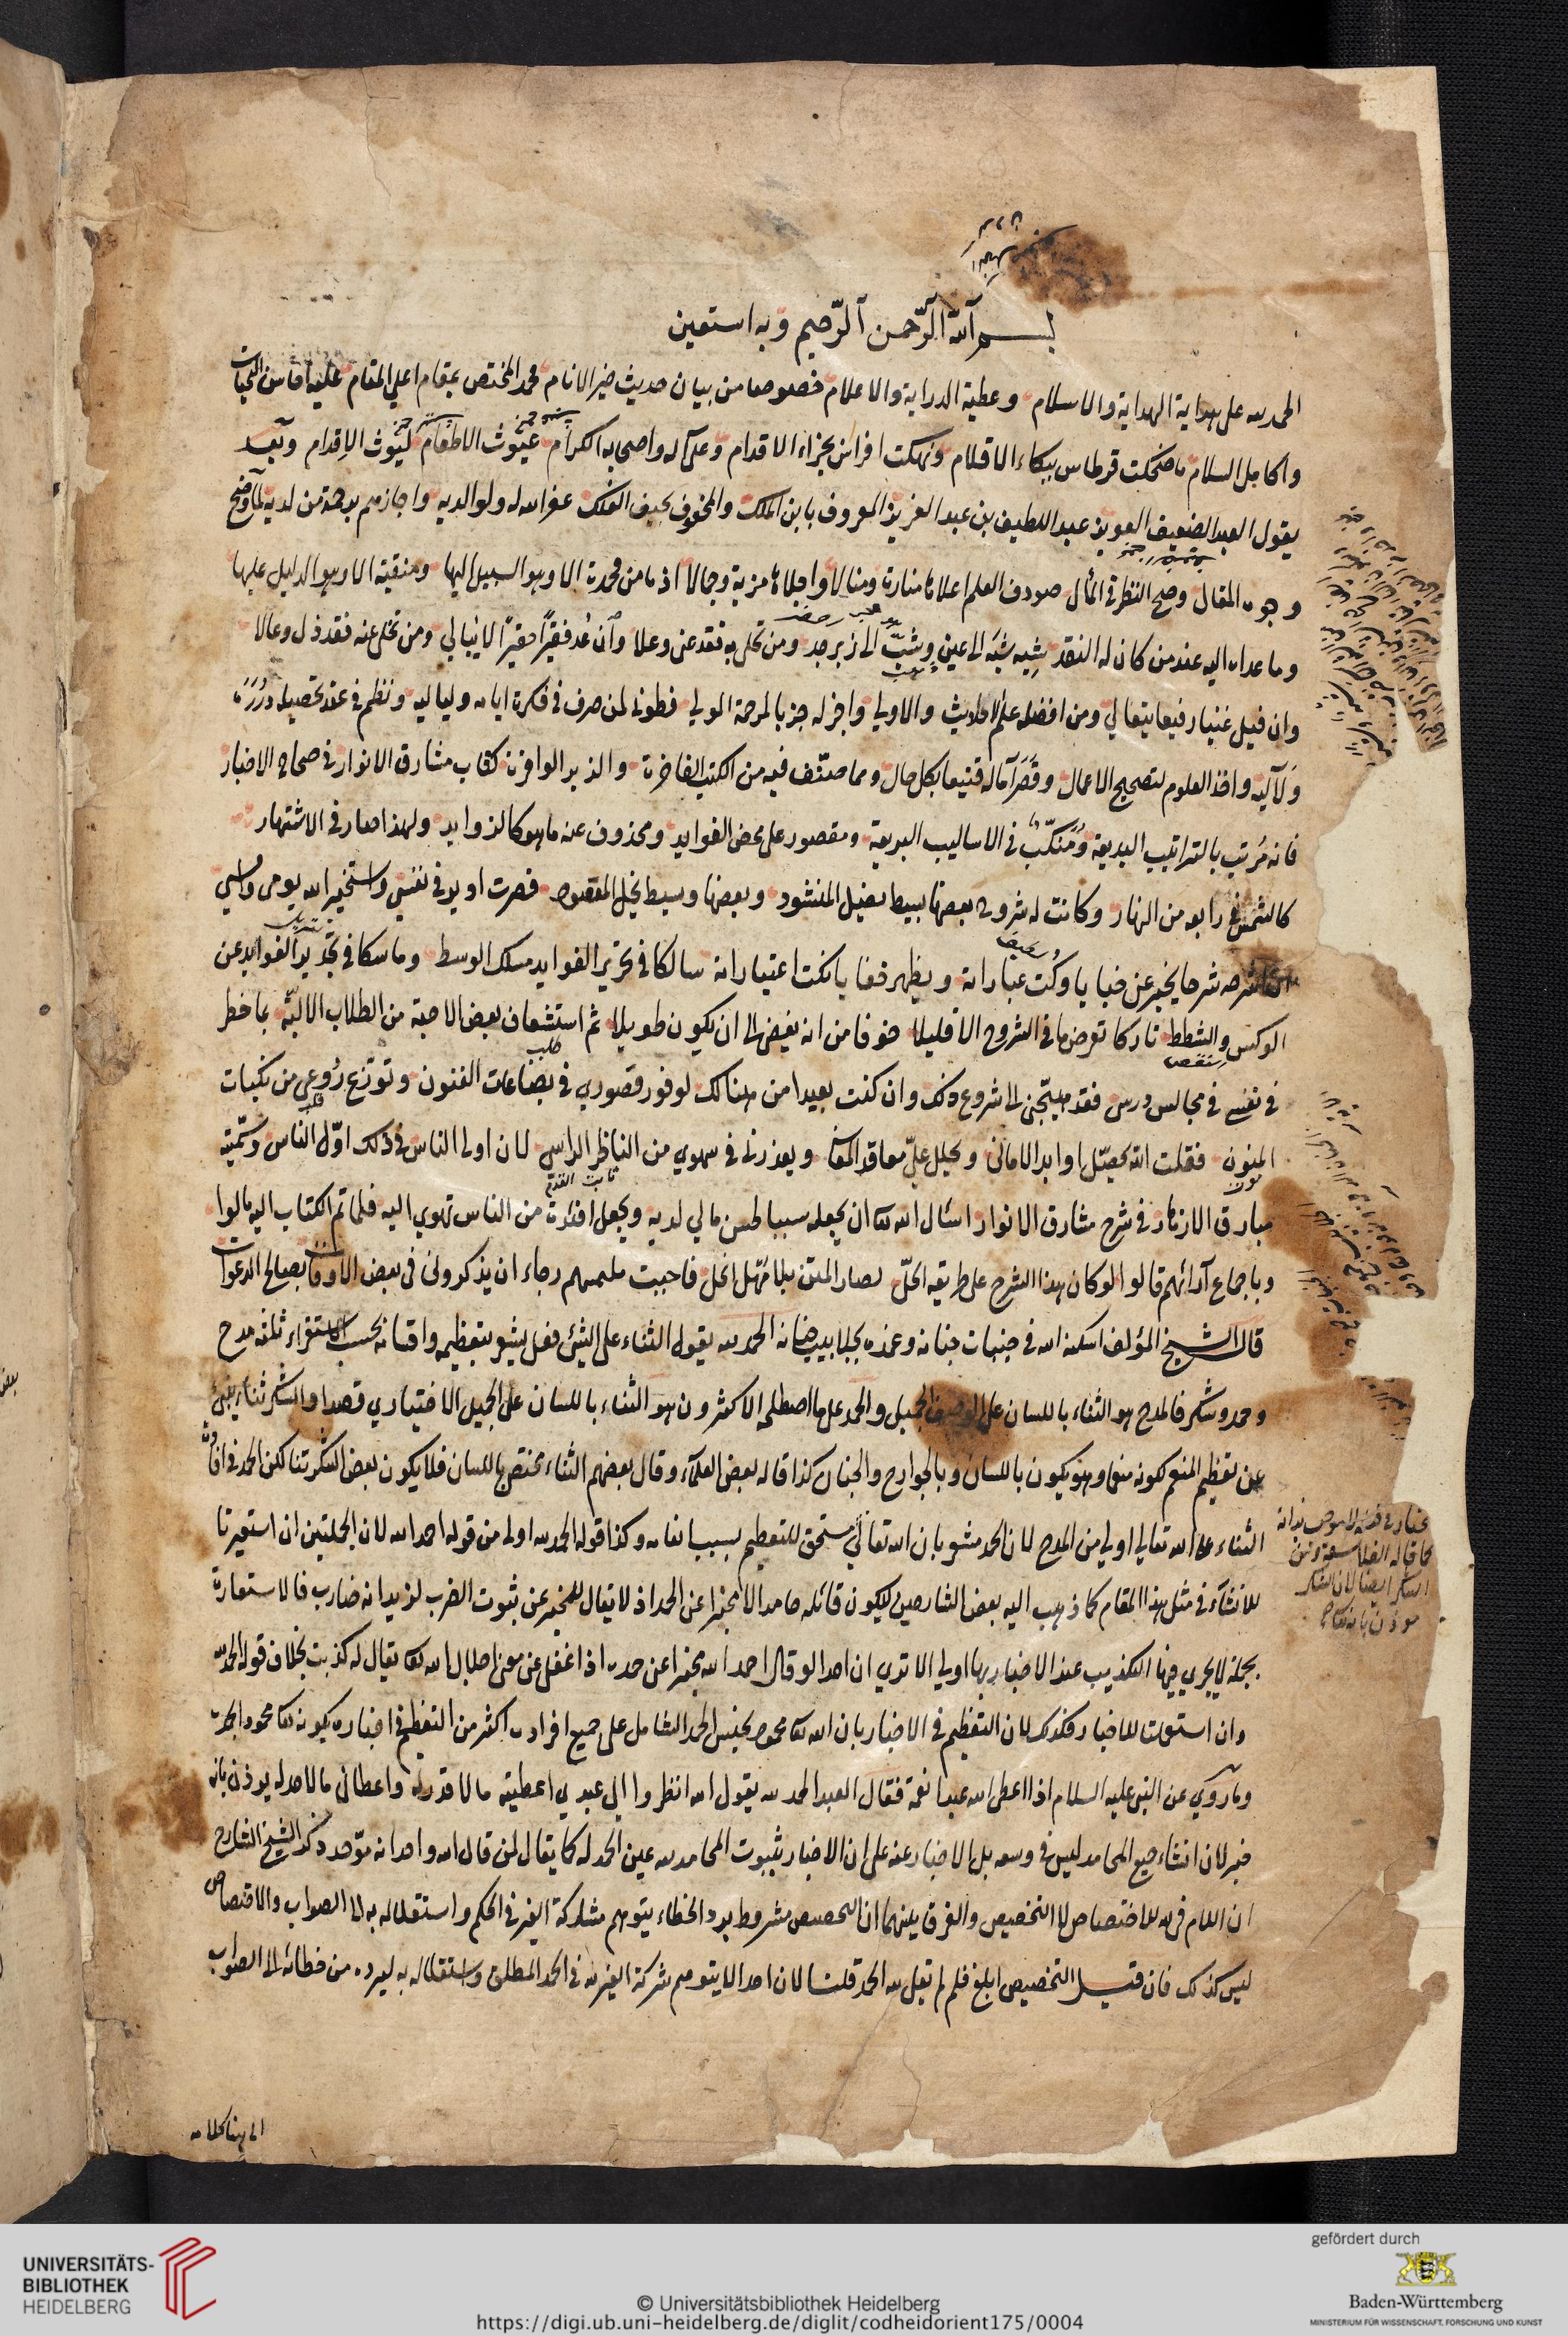 بسم الله الرّحمن الرّحيم وبه استعين
الحمد لله على هداية الهداية والاسلام وعطية الدراية والاعلام خصوصا من بيان حديث خير الانام محمد المختص بمقام اعلي المقام عليه افاضل التحيات
واكامل السلام ما ضحكت قرطاس ببكاء الاقلام ونهكت افراس بجراء الاقدام وعلى آله واصحابه الكرام غيوث الاطعام ليوث الاقدام وبعد
يقول العبد الضعيف العويز عبد اللطيف بن عبد العزيز المعروف بابن الملك والمخوف بحيف الفلك غفر الله له ولوالديه واجازهم برحمة من لديه لما وضح
وجوه المقال وصح النظر في المآل صودف العلم اعلاها منارة ومنالا واجلاها مزية وجمالا اذ ما من محمدة الا وهو السبيل اليها ومنقبة الا وهو الدليل عليها
وما عداه اليه عند من كان له النقد شبه شبه الى عين وشبّ الى زبرجد ومن تحلى به فقد غنى وعلا وان عُد فقيرًا حقيرًا لا يبالي ومن تخلى عنه فقد ذل وعالا
وان قيل غنيا رفيعا يتعالي ومن افضله علم الاحاديث والاولي واجزله جز بالمرحمة المولي فطوبى لمن صرف في فكرة ايامه ولياليه ونظم في عقد تحصيله دُرَرَه
وَلآليه واخذ العلوم لتصحيح الاعمال وقَصَر آماله قنيعا بكل حال ومما صنّف فيه من الكتب الفاخرة والزبر الوافرة كتاب مشارق الانوار في صحاح الاخبار
فانه مُرتب بالتراتيب البديعة ومُنَكّب في الاساليب البريعة ومقصور على محض الفوايد ومحذوف عنه ما هو كالزوايد ولهذا صار في الاشتهار
كالشمس في رابعة من النهار وكانت له شروح بعضها بسيط يضيل المنشود وبعضها وسيط يخل المقصود فصرت اوير في نفسي واستخير الله يومى وامسي
ان اشرحه شرحا يخبر عن خبايا وكُت عباراته ويظهر خفايا نكت اعتباراته سالكا في تحرير الفوايد مسلك الوسط وماسكا في تجديد الفوايد عن
الوكس والشطط تاركا تعرض ما في الشروح الا قليلا خوفا من انه يفيض الى ان يكون طويلا ثم استشعاف بعض الاحبة من الطلاب الالبّه بما خطر
في نفسي في مجالس درس فقد هيّجنى الى شروع ذلك وان كنت بعيدا من هنالك لوفور قصوري في بضاعات الفنون وتوزع رُوعى من نكبات
المنون فقلت الله يحصّل اوابد الامانى ويحلل عليّ معاقد المعانى ويعذرنى في سهوي من الناظر الراسي لان اول الناس في ذلك اوّل الناس وسمّيته
مبارق الازهار في شرح مشارق الانوار اسئال الله تعالى ان يجعله سببا لحسن مالي لديه ويجعل افئدة من الناس تهوي اليه فلما تم الكتاب اليه مالوا
وباجماع آرائهم قالوا لو كان هذا الشرح على طريقه الحلّ لصار المتن بلا مَهل انحل فاجبت ملتمسهم رجاء ان يذكرونى في بعض الاوقات بصالح الدعوات
قال الشيخ المؤلف اسكنه الله في جنبات جنانه وغمده بجلابيب رضوانه الحمد لله يقول الثناء على الشئ فعل يشعر بتعظيمه واقسامه بحسب الاستقراء ثلثة مدح
وحمد وشكر فالمدح هو الثناء باللسان على الوصف الجميل والحمد على ما اصطلحه الاكثرون هو الثناء باللسان على الجميل الاختياري قصدا والشكر ثناء ينبئ
عن تعظيم المنعم لكونه منعما وهو يكون باللسان وبالجوارح والجنان كذا قاله بعض العلماء وقال بعضهم الثناء مختص باللسان فلا يكون بعض الشكر ثناء لكن الحمد في افادة
الثناء على الله تعالي اولي من المدح لان الحمد مشعر بان الله تعالي مستحق للتعظيم بسبب انعامه وكذا قوله الحمد لله اولى من قوله احمد الله لان الجملتين ان استعيرتا
للانشاء في مثل هذا المقام كما ذهب اليه بعض الشارحين ليكون قائله حامدا لا مخبرا عن الحمد اذ لا يقال للمخبر عن ثبوت الضرب لزيد انه ضارب فالاستعارة
بجملة لا يجري فيها التكذيب عند الاخبار بها اولي الا تري ان احدا لو قال احمد الله مخبرا عن حمده اذا غفل عن معنى اجلال الله تعالى يقال له كذبت بخلاف قوله الحمد لله
وان استعملتا للاخبار فكذلك لان التعظيم في الاخبار بان الله تعالى محمود بجنس الحمد الشامل على جميع افراده اكثر من التعظيم في اخباره بكونه تعالى محمود الحمد
وما روي عن النبى عليه السلام اذا اعطى الله عبدا نعمة فقال العبد الحمد لله يقول الله انظروا الى عبدي اعطيته ما لا قدر له واعطانى ما لا حد له يوذن بانه
خبر لان انشاء جميع المحامد ليس في وسعه بل الاخبار عنه على ان الاخبار بثبوت المحامد لله عين الحمد له كما يقال لمن قال الله واحد انه موّحد ذكر الشيخ الشارح
ان اللام في لله للاختصاص لا التخصيص والفرق بينهما ان التخصيص مشروط برد الخطاء يتوهم مشاركة الغير في الحكم واستقلاله به الى الصواب والاختصاص
ليس كذلك فان قيل التخصيص ابلغ فلم لم تقل لله الحمد قلنا لان احدا لا يتوهم شركة الغير لله في الحمد المطلق واستقلاله به ليرده من خطائه الى الصواب
الى هنا كلامه
UNIVERSITÄTS-
BIBLIOTHEK
HEIDELBERG
© Universitätsbibliothek Heidelberg
https://digi.ub.uni-heidelberg.de/diglit/codheidorient175/0004
gefördert durch
Baden-Württemberg
MINISTERIUM FÜR WISSENSCHAFT, FORSCHUNG UND KUNST